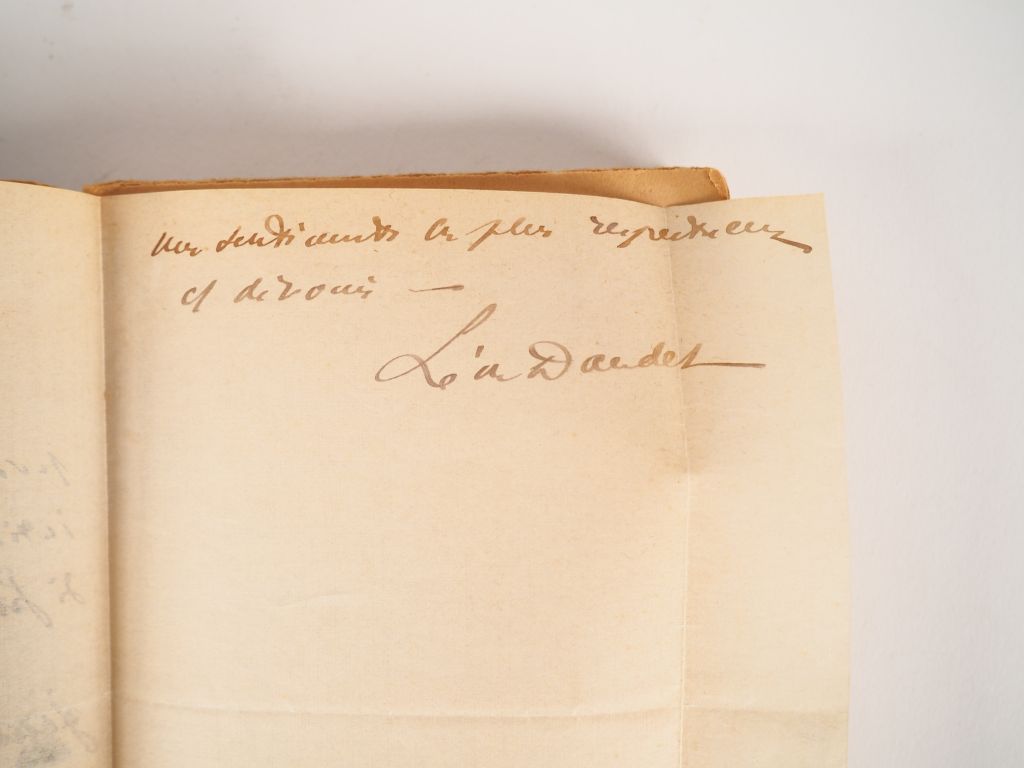 mes sentiments les plus respectueux
et dévoués —
Léon Daudet